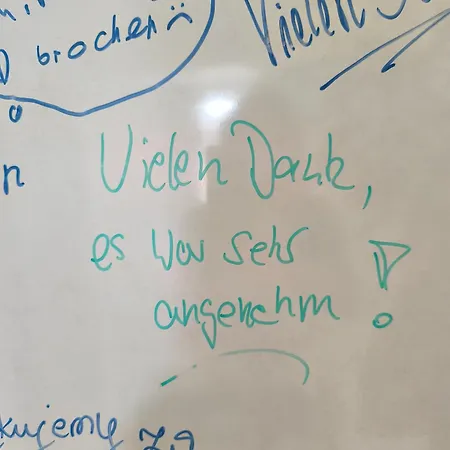 brochen
Vielen
n
Vielen Dank,
es war sehr
angenehm !
kujemy za